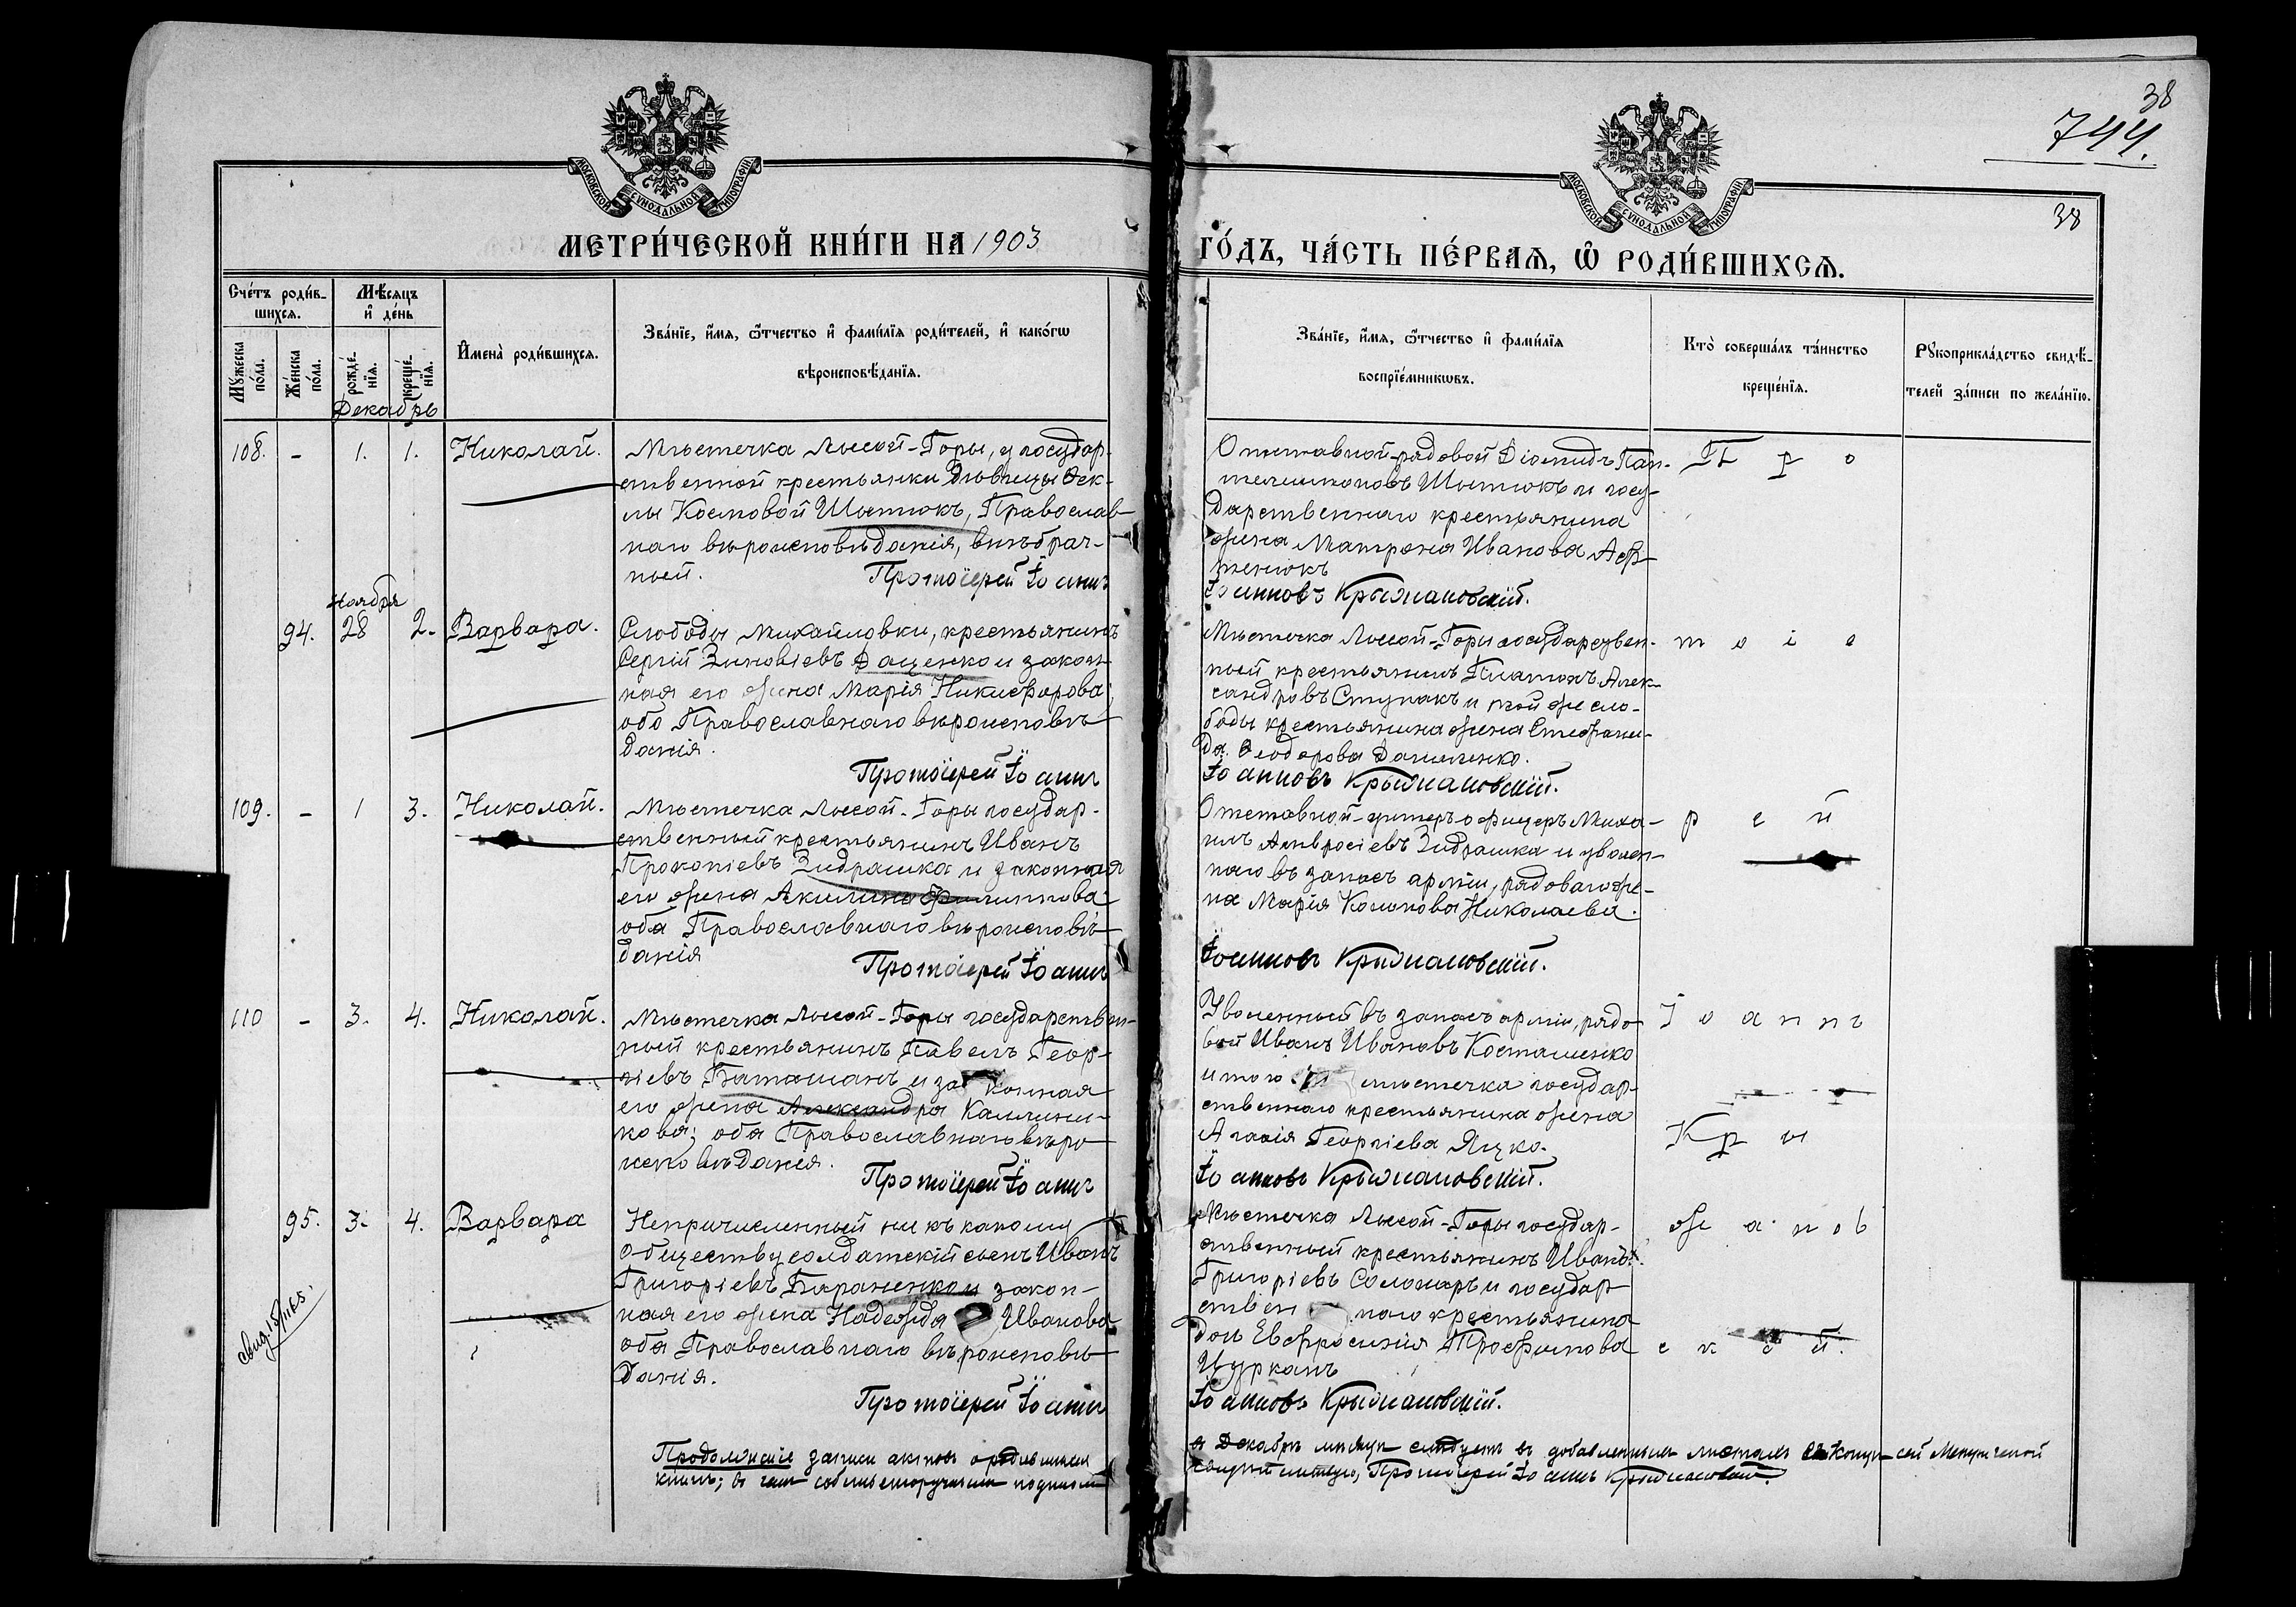 38
744.
38
МОСКОВСКОЙ СѴНОДАЛЬНОЙ ТИПОГРАФІИ
МОСКОВСКОЙ СѴНОДАЛЬНОЙ ТИПОГРАФІИ
МЕТРИ́ЧЕСКОЙ КНИ́ГИ НА 1903
ГО́ДЪ, ЧА́СТЬ ПЕ́РВАѦ, Ѡ҆ РОДИ́ВШИХСѦ.
Сче́тъ роди́в-
шихсѧ.
Мꙋжеска по́ла.
Же́нска по́ла.
Мѣ́сѧцъ
и҆ де́нь
рожде́-
нїѧ.
креще́-
нїѧ.
Декабрь
И҆мена̀ роди́вшихсѧ.
Зва́нїе, и҆́мѧ, ѻ҆́тчество и҆ фами́лїѧ роди́телей, и҆ како́гѡ
вѣроисповѣ́данїѧ.
Зва́нїе, и҆́мѧ, ѻ҆́тчество и҆ фами́лїѧ
воспрїе́мникѡвъ.
Кто̀ соверша́лъ та́инство
креще́нїѧ.
Рꙋкоприкла́дство свидѣ́-
телей за́писи по жела́нїю.
108. - 1. 1. Николай.
Мѣстечка Лысой-Горы, у государ-
ственной крестьянки дѣвицы Ѳек-
лы Космовой Шытюкъ, Православ-
наго вѣроисповѣданія, внѣбрач-
ный.
Протоіерей Іоаннъ
Отставной рядовой Діомидъ Пан-
телимоновъ Шытюкъ и госу-
дарственнаго крестьянина
жена Матрона Иванова Аф-
тенюкъ
Іоанновъ Крыжановскій.
П р о
Ноября
94. 28 2. Варвара.
Слободы Михайловки, крестьянинъ
Сергій Зиновіевъ Даценко и закон-
ная его жена Марія Никифорова
оба Православнаго вѣроисповѣ-
данія.
Протоіерей Іоаннъ
Мѣстечка Лысой-Горы государствен-
ный крестьянинъ Платонъ Алек-
сандровъ Ступакъ и той же сло-
боды крестьянина жена Стефани-
да Ѳеодорова Даниленко.
Іоанновъ Крыжановскій.
т о і е
109. - 1 3. Николай.
Мѣстечка Лысой-Горы государ-
ственный крестьянинъ Иванъ
Прокопіевъ Зидрашка и законная
его жена Акилина Филиппова
оба Православнаго вѣроисповѣ-
данія
Протоіерей Іоаннъ
Отставной унтеръ офицеръ Миха-
илъ Амвросіевъ Зидрашка и уволен-
наго въ запасъ арміи, рядоваго же-
на Марія Николаева.
Іоанновъ Крыжановскій.
р е й
110 - 3. 4. Николай.
Мѣстечка Лысой-Горы государствен-
ный крестьянинъ Павелъ Геор-
гіевъ Баташанъ и законная
его жена Александра Каллини-
кова; оба Православнаго вѣро-
исповѣданія.
Протоіерей Іоаннъ
Уволенный въ запасъ арміи, рядо-
вой Иванъ Ивановъ Косташенко
и того мѣстечка государ-
ственнаго крестьянина жена
Агафія Георгіева Яцко.
Іоанновъ Крыжановскій.
І о а н н ъ
К р ы
95. 3. 4. Варвара
Непричисленный ни къ какому
обществу солдатскій сынъ Иванъ
Григоріевъ Бараненко и закон-
ная его жена Надежда Иванова
оба Православнаго вѣроисповѣ-
данія.
Протоіерей Іоаннъ
Мѣстечка Лысой-Горы государ-
ственный крестьянинъ Иванъ
Григоріевъ Солонаръ и государ-
ственнаго крестьянина
дочь Евфросинія Трофимова
Цурканъ
Іоанновъ Крыжановскій.
ж а н о в
с к і й.
свид.
Продолженіе записи актовъ о родившихся
за Декабрь мѣсяцъ слѣдуетъ въ добавленныхъ листахъ въ концѣ сей Метрической
книги; въ чемъ собственноручнымъ подписомъ
свидѣтельствую, Протоіерей Іоаннъ Крыжановскій.